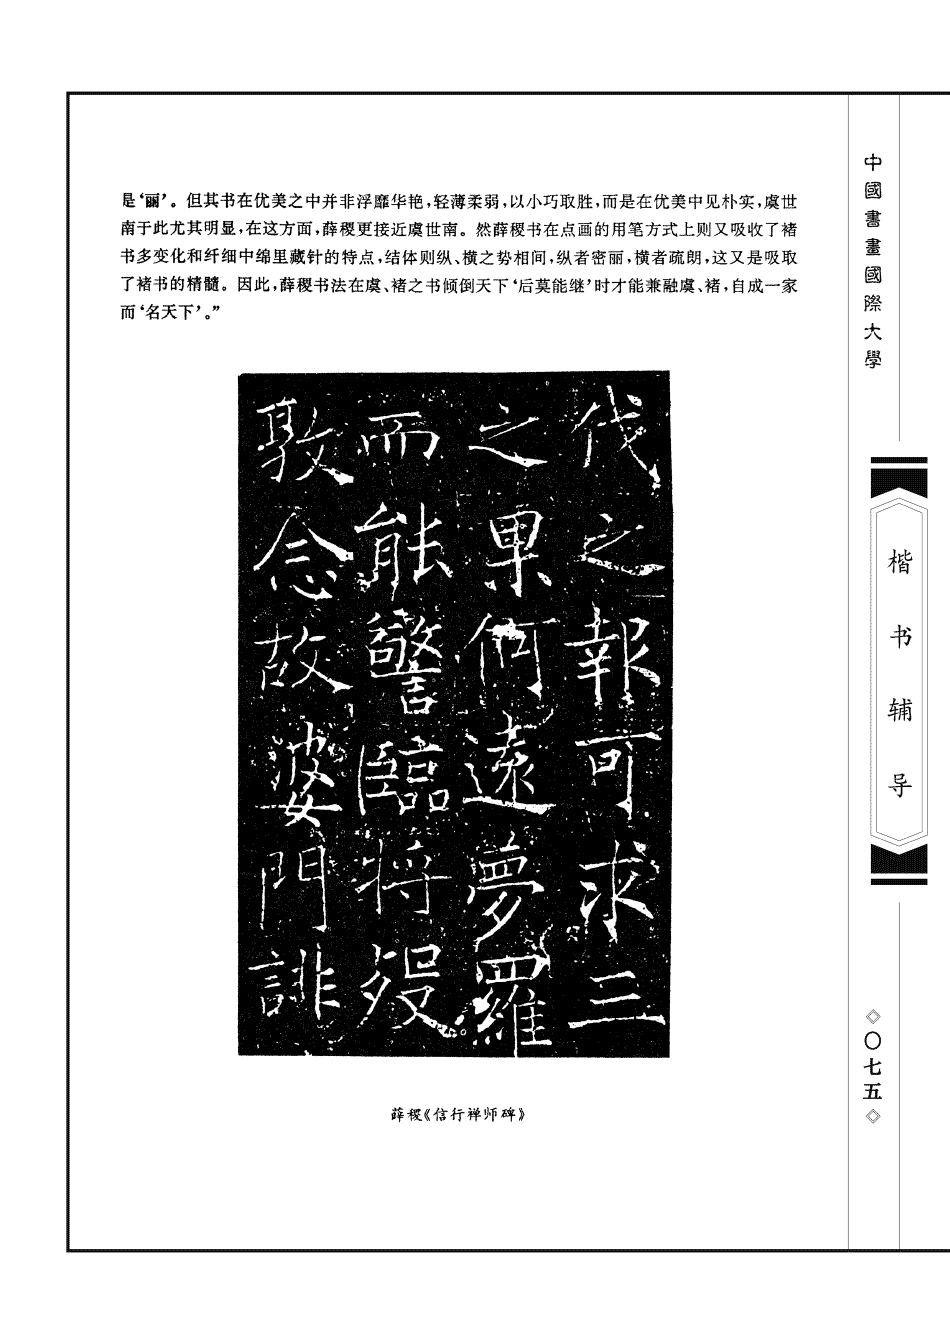 是‘丽’。但其书在优美之中并非浮靡华艳,轻薄柔弱,以小巧取胜,而是在优美中见朴实,虞世
南于此尤其明显,在这方面,薛稷更接近虞世南。然薛稷书在点画的用笔方式上则又吸收了褚
书多变化和纤细中绵里藏针的特点,结体则纵、横之势相间,纵者密丽,横者疏朗,这又是吸取
了褚书的精髓。因此,薛稷书法在虞、褚之书倾倒天下‘后莫能继’时才能兼融虞、褚,自成一家
而‘名天下’。”
伐之報可求三
之果何遠夢羅
而能警臨将殁
敦念故婆門誹
薛稷《信行禅师碑》
中國書畫國際大學
楷书辅导
◇〇七五◇